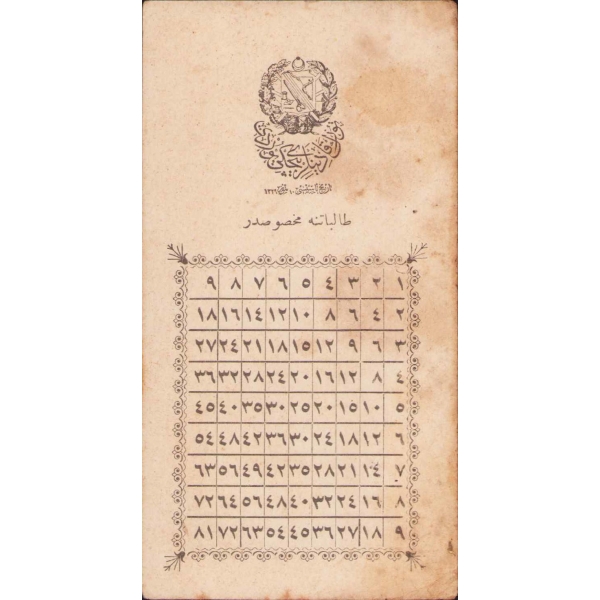 تاريخ تأسيسى ١٠
طالباتنه مخصوصدر
١ ٢ ٣ ٤ ٥ ٦ ٧ ٨ ٩
٢ ٤ ٦ ٨ ١٠ ١٢ ١٤ ١٦ ١٨
٣ ٦ ٩ ١٢ ١٥ ١٨ ٢١ ٢٤ ٢٧
٤ ٨ ١٢ ١٦ ٢٠ ٢٤ ٢٨ ٣٢ ٣٦
٥ ١٠ ١٥ ٢٠ ٢٥ ٣٠ ٣٥ ٤٠ ٤٥
٦ ١٢ ١٨ ٢٤ ٣٠ ٣٦ ٤٢ ٤٨ ٥٤
٧ ١٤ ٢١ ٢٨ ٣٥ ٤٢ ٤٩ ٥٦ ٦٣
٨ ١٦ ٢٤ ٣٢ ٤٠ ٤٨ ٥٦ ٦٤ ٧٢
٩ ١٨ ٢٧ ٣٦ ٤٥ ٥٤ ٦٣ ٧٢ ٨١